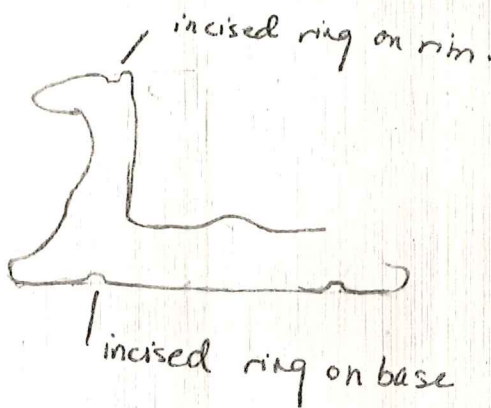 incised ring on rim.
incised ring on base